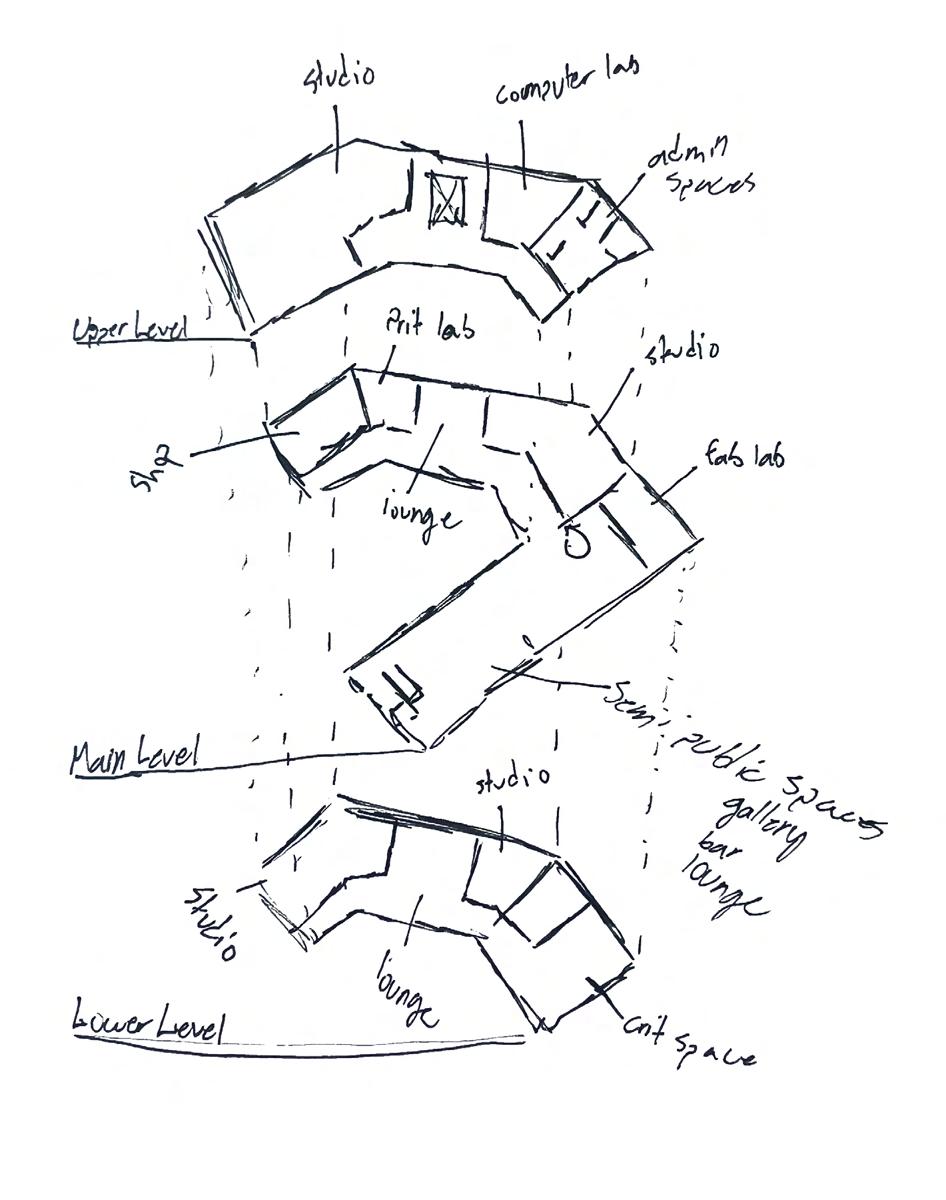 studio
computer lab
admin
spaces
Upper Level
Prit lab
studio
fab lab
lounge
Main Level
Semi public spaces
gallery
bar
lounge
studio
studio
lounge
Lower Level
crit space